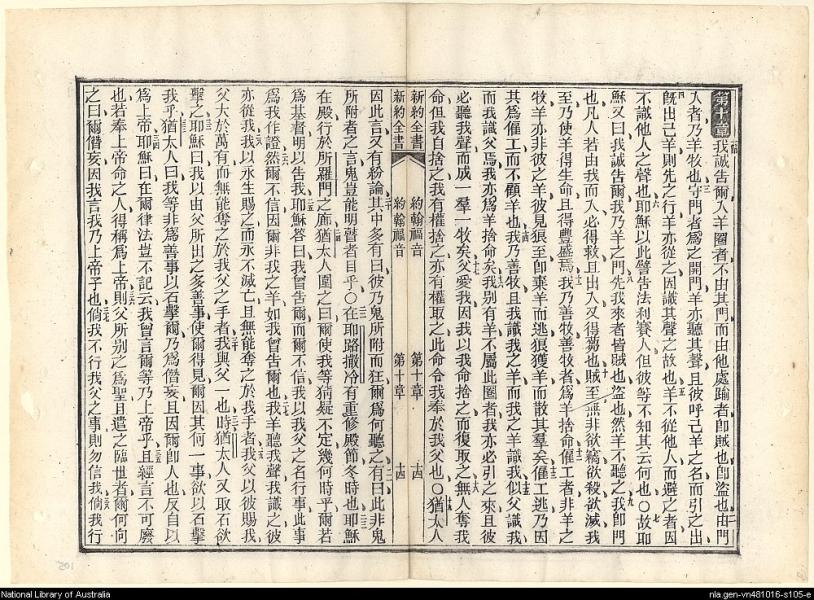 第十章 我誠告爾入羊圈者不由其門而由他處踰者卽賊也卽盜也由門
入者乃羊牧也守門者爲之開門羊亦聽其聲且彼呼己羊之名而引之出
旣出己羊則先之行羊亦從之因識其聲之故也羊不從他人而避之者因
不識他人之聲也耶穌以此譬告法利賽人但彼等不知其云何也〇故耶
穌又曰我誠告爾我乃羊之門先我來者皆賊也盜也然羊不聽之我卽門
也凡人若由我而入必得救且出入又得芻也賊至無非欲竊欲殺欲滅我
至乃使羊得生命且得豐盛焉我乃善牧善牧者爲羊捨命僱工者非羊之
牧羊亦非彼之羊彼見狼至卽棄羊而逃狼獲羊而散其羣矣僱工逃乃因
其爲僱工而不顧羊也我乃善牧且我識我之羊而我之羊識我似父識我
而我識父焉我亦爲羊捨命矣我別有羊不屬此圈者我亦必引之來且彼
必聽我聲而成一羣一牧矣父愛我因我以我命捨之而復取之無人奪我
命但我自捨之我有權捨之亦有權取之此命令我奉於我父也〇猶太人
新約全書 約翰福音 第十章 十四
新約全書 約翰福音 第十章 十四
因此言又有紛論其中多有曰彼乃鬼所附而狂爾爲何聽之有曰此非鬼
所附者之言鬼豈能明瞽者目乎〇在耶路撒冷有重修殿節冬時也耶穌
在殿行於所羅門之廊猶太人圍之曰爾使我等猜疑不定幾何時乎爾若
爲基督明以告我耶穌答曰我曾告爾而爾不信我以我父之名行事此事
爲我作證然爾不信因爾非我之羊如我曾告爾也我羊聽我聲我識之彼
亦從我我以永生賜之而永不滅亡且無能奪之於我手者我父以彼賜我
父大於萬有而無能奪之於我父之手者我與父一也時猶太人又取石欲
擊之耶穌曰我以由父所出之多善事使爾得見爾因其何一事欲以石擊
我乎猶太人曰我等非爲善事以石擊爾乃爲僭妄且因爾卽人也反自以
爲上帝耶穌曰在爾律法豈不記云我曾言爾等乃上帝乎且經言不可廢
也若奉上帝命之人得稱爲上帝則父所別之爲聖且遣之臨世者爾何向
之曰爾僭妄因我言我乃上帝子也倘我不行我父之事則勿信我倘我行
National Library of Australia
nla.gen-vn481016-s105-e